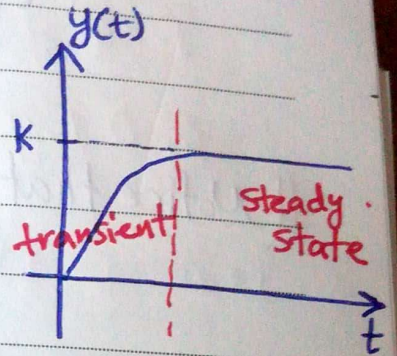 y(t)
K
transient
Steady
State
t